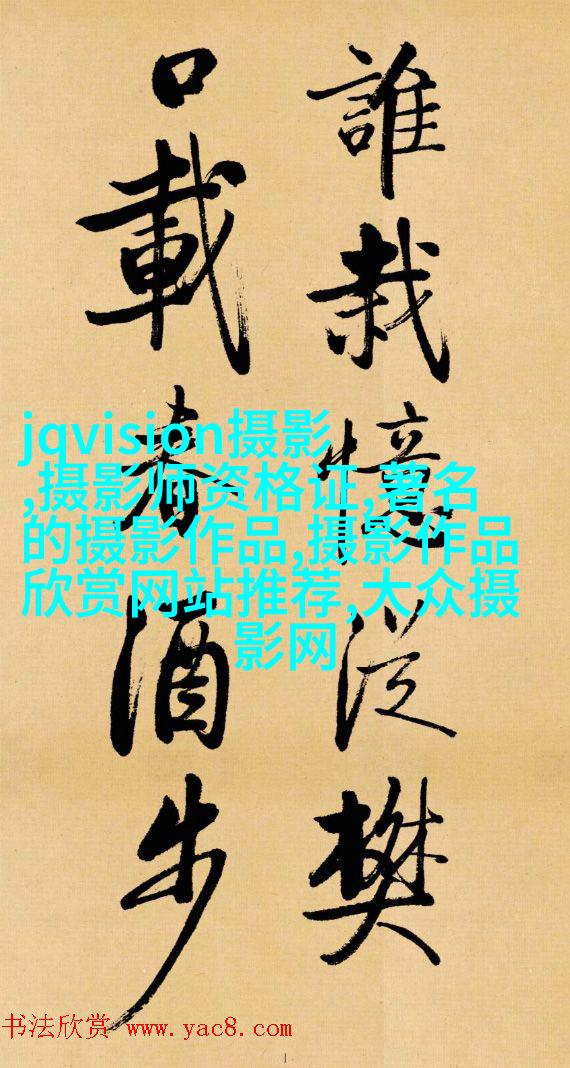 誰栽憶從樊
口載酒步
jqvision摄影
,摄影师资格证,著名
的摄影作品,摄影作品
欣赏网站推荐,大众摄
影网
书法欣赏 www.yac8.com